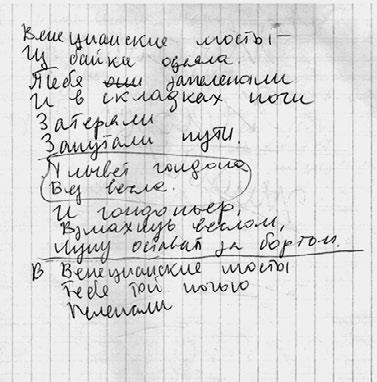 Венецианские мосты –
Из байки одеяла.
Тебя запеленали
И в складках ночи
Затеряли
Запутали пути.
Плывет гондола
Без весла.
И гондольер,
Взмахнув веслом,
Луну оставит за бортом.
В Венецианские мосты
Тебе той ночью
Пеленали